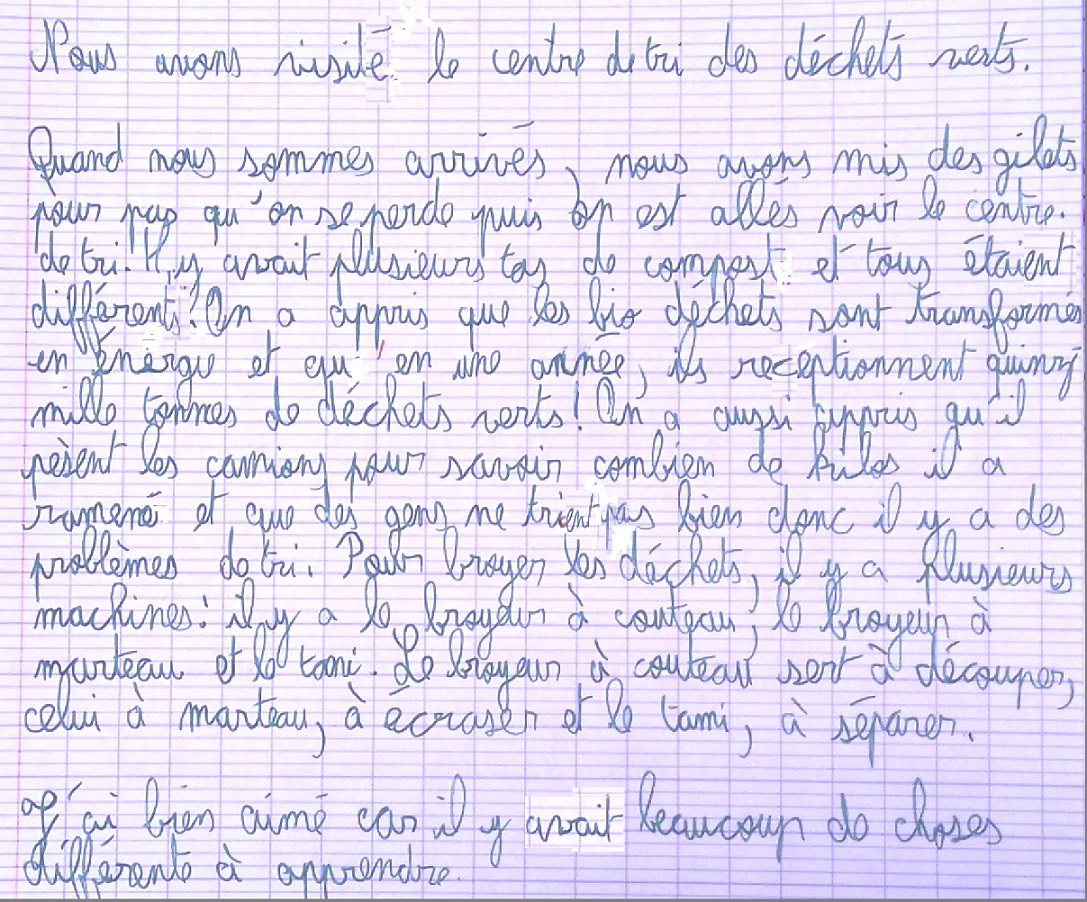 Nous avons visité le centre de tri des déchets verts.
Quand nous sommes arrivés, nous avons mis des gilets
pour pas qu'on se perde puis on est allés voir le centre.
de tri. Il y avait plusieurs tas de compost et tous étaient
différent! On a appris que les bio déchets sont transformés
en énergie et qu'en une année, ils receptionnent quinze
mille tonnes de déchets verts! On a aussi appris qu'il
pèsent les camions pour savoir combien de kilos il a
ramené et que des gens ne trient pas bien donc il y a des
problèmes de tri. Pour broyer les déchets, il y a plusieurs
machines: il y a le broyeur à couteau, le broyeur à
marteau et le tami. Le broyeur à couteau sert à découper,
celui à marteau, à écraser et le tami, à séparer.
J'ai bien aimé car il y avait beaucoup de choses
différente à apprendre.